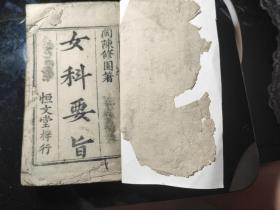 閩陳修園著
女科要旨
恒文堂梓行